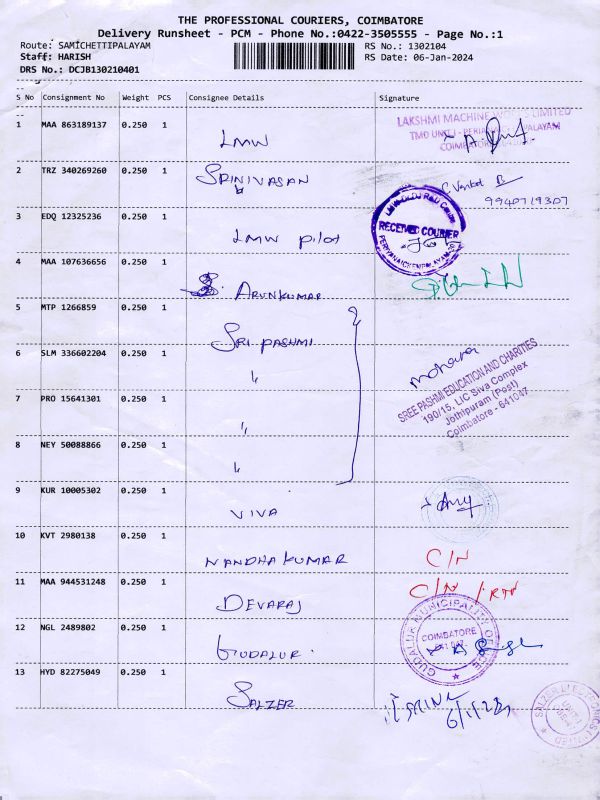 THE PROFESSIONAL COURIERS, COIMBATORE
Delivery Runsheet - PCM - Phone No.:0422-3505555 - Page No.:1
Route: SAMICHETTIPALAYAM RS No.: 1302104
Staff: HARISH RS Date: 06-Jan-2024
DRS No.: DCJB130210401
S No Consignment No Weight PCS Consignee Details Signature
1 MAA 863189137 0.250 1 LMW
LAKSHMI MACHINE WORKS LIMITED
TMD UNIT
COIMBATORE
2 TRZ 340269260 0.250 1 SRINIVASAN
Venkat
9940719307
3 EDQ 12325236 0.250 1 LMW pilot
RECEIVED COURIER
4 MAA 107636656 0.250 1 S. ARUNKUMAR
5 MTP 1266859 0.250 1 SRI PASHMI
6 SLM 336602204 0.250 1 "
SREE PASHMI EDUCATION AND CHARITIES
190/15, LIC Siva Complex
Jothipuram (Post)
Coimbatore - 641047
7 PRO 15641301 0.250 1 "
8 NEY 50088866 0.250 1 "
9 KUR 10005302 0.250 1 VIVA
10 KVT 2980138 0.250 1 NANDHAKUMAR C/N
11 MAA 944531248 0.250 1 DEVARAJ C/N / RTN
12 NGL 2489802 0.250 1 GUDALUR.
GUDALUR MUNICIPALITY OFFICE
COIMBATORE
13 HYD 82275049 0.250 1 SALZER
SALZER ELECTRONICS LIMITED